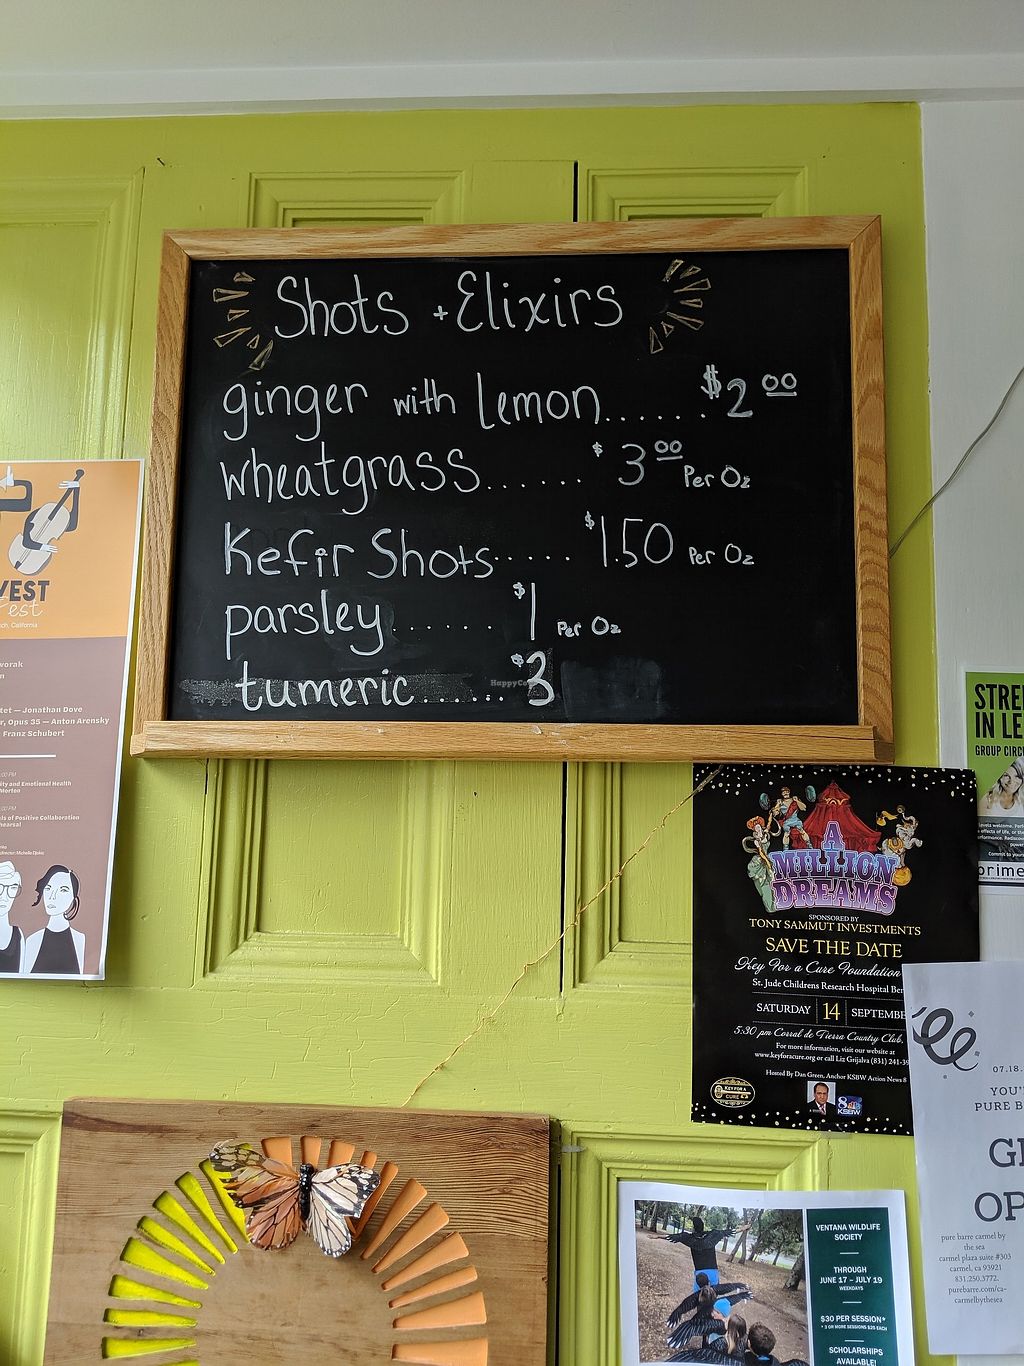 Shots + Elixirs
ginger with lemon...... $2 00
wheatgrass...... $3 00 Per Oz
Kefir Shots..... $1.50 Per Oz
parsley...... $1 Per Oz
tumeric...... $3
HappyCo
VEST
Fest
California
vorak
tet — Jonathan Dove
Opus 35 — Anton Arensky
Franz Schubert
ity and Emotional Health
Morton
ls of Positive Collaboration
hearsal
STRE
IN LE
GROUP CIRC
prime
A
MILLION
DREAMS
SPONSORED BY
TONY SAMMUT INVESTMENTS
SAVE THE DATE
Key For a Cure Foundation
St. Jude Childrens Research Hospital Ben
SATURDAY 14 SEPTEMBE
5:30 pm Corral de Tierra Country Club,
For more information, visit our website at
www.keyforacure.org or call Liz Grijalva (831) 241-39
Hosted By Dan Green, Anchor KSBW Action News 8
KEY FOR A
CURE
8
KSBW
07.18.
YOU'
PURE B
GI
OP
pure barre carmel by
the sea
carmel plaza suite #303
carmel, ca 93921
831.250.3772.
purebarre.com/ca-
carmelbythesea
VENTANA WILDLIFE
SOCIETY
THROUGH
JUNE 17 – JULY 19
WEEKDAYS
$30 PER SESSION*
* 3 OR MORE SESSIONS $25 EACH
SCHOLARSHIPS
AVAILABLE!